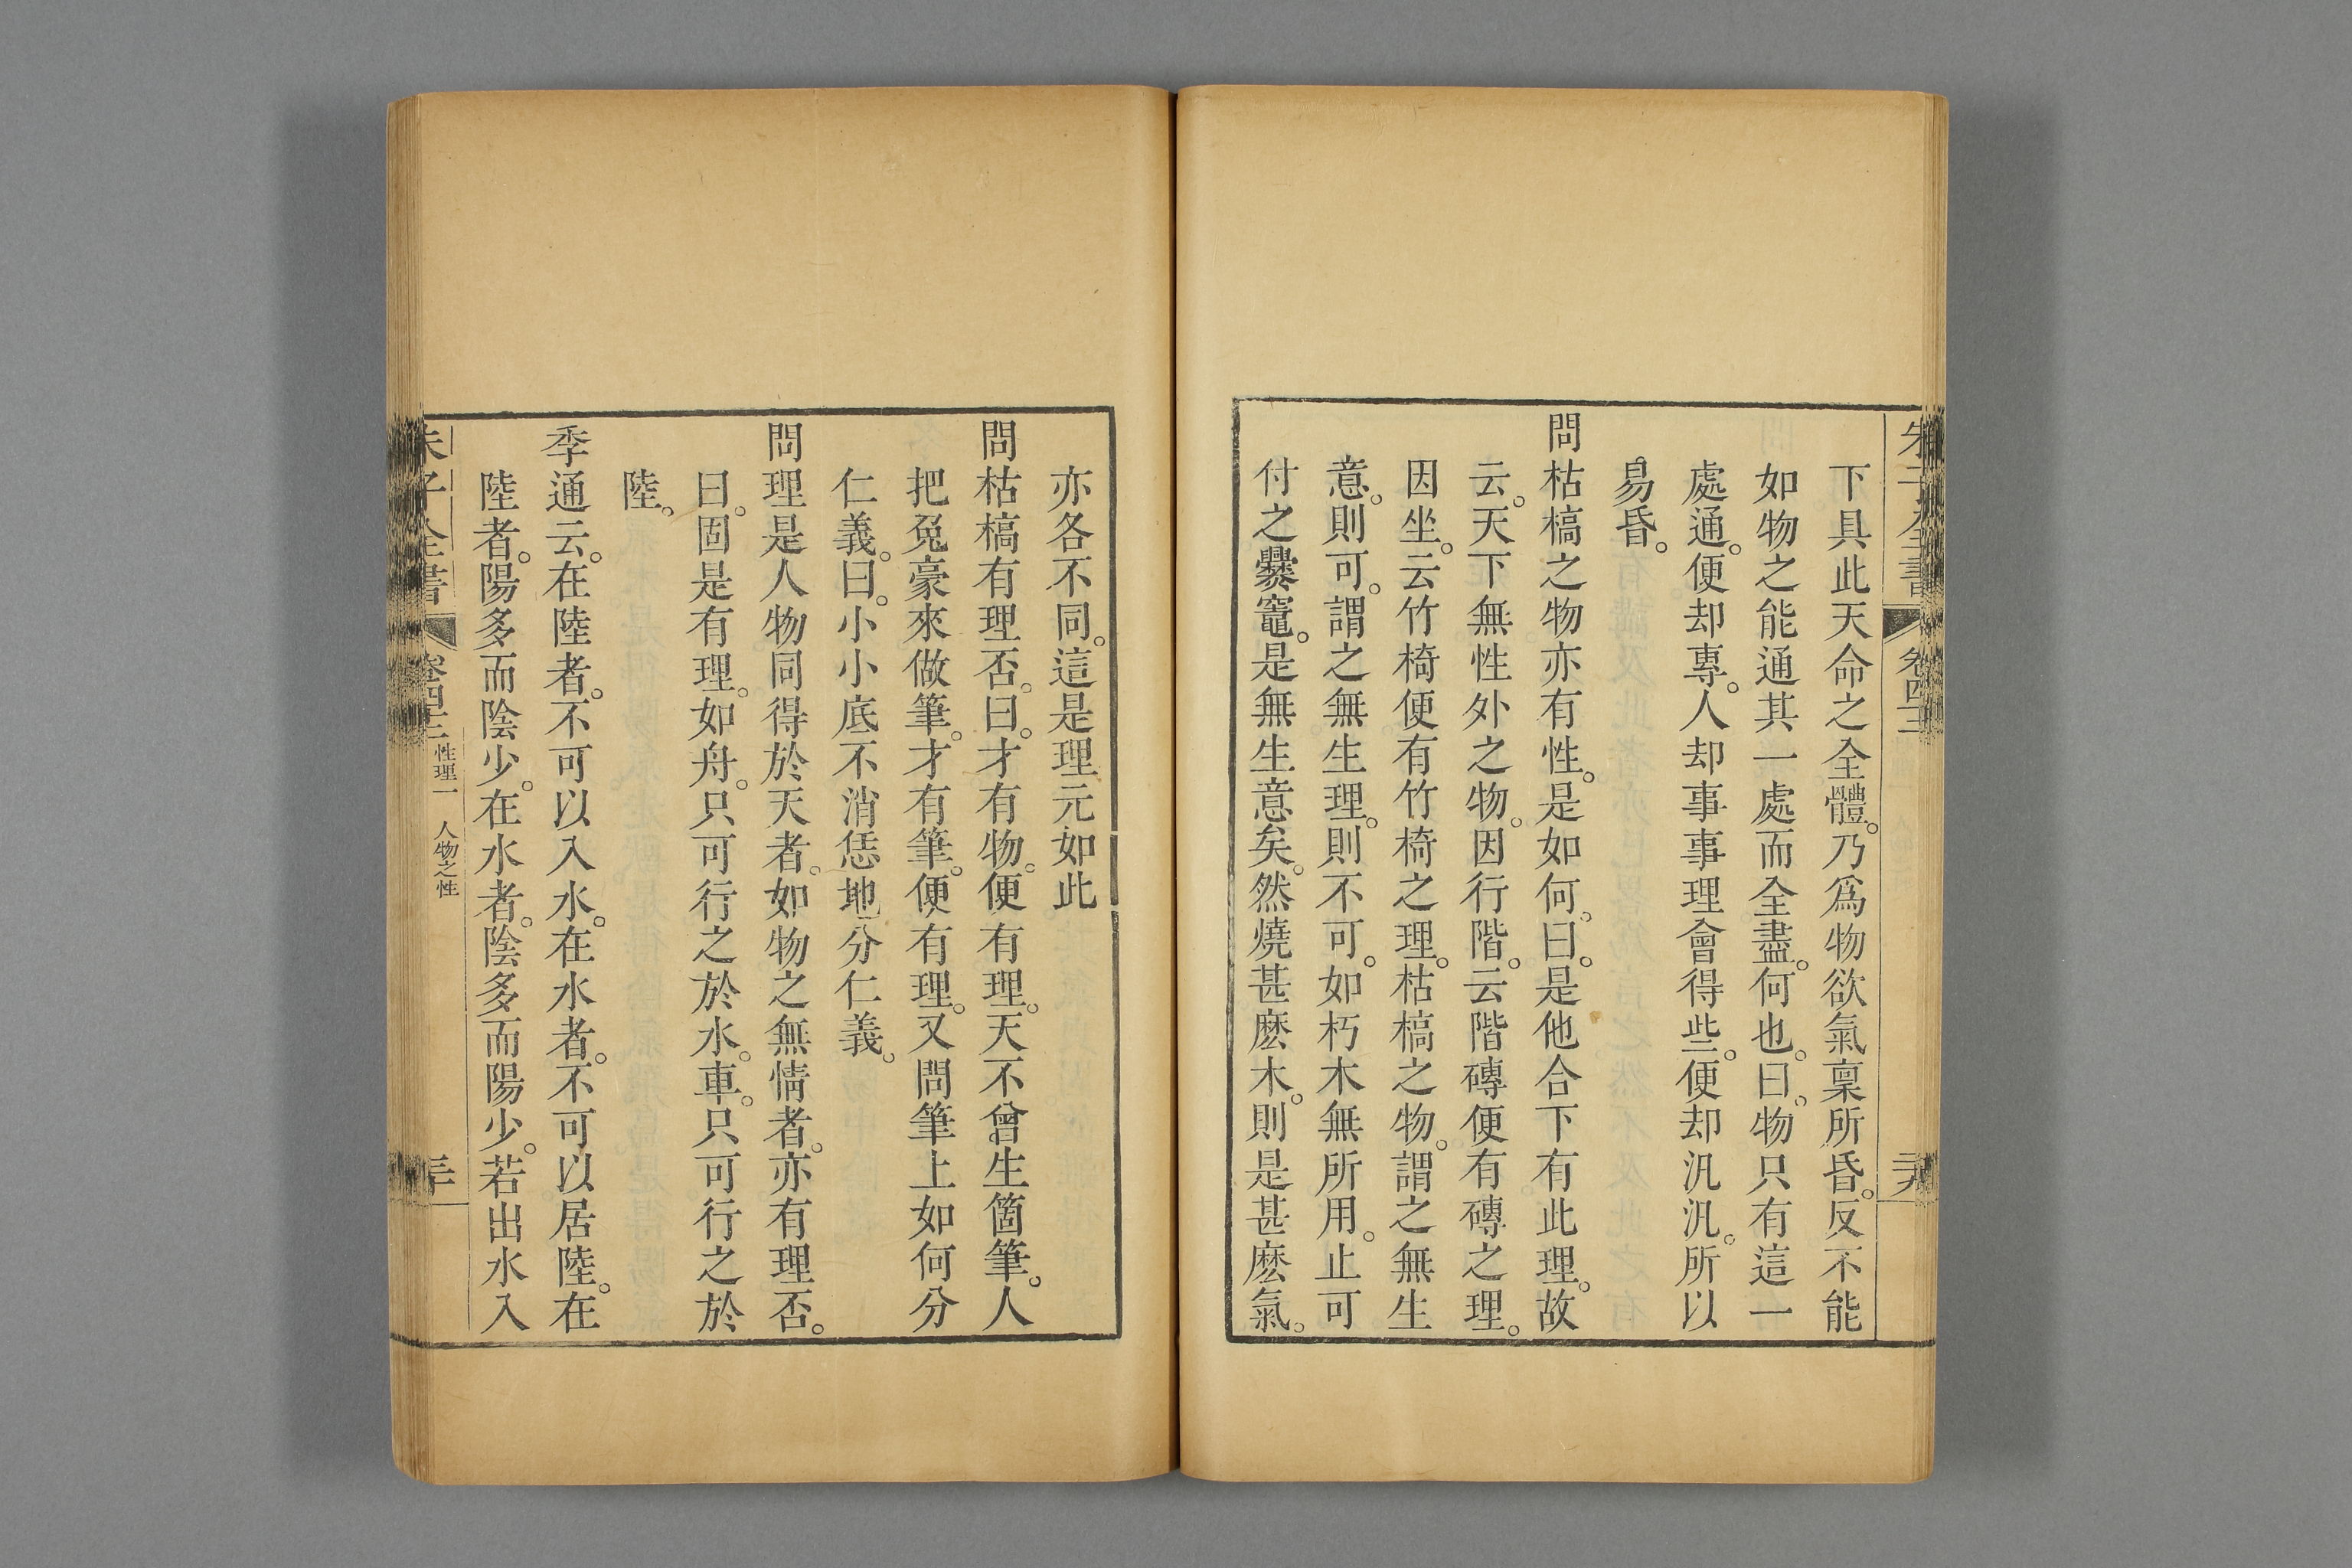 朱子全書 卷四十二
下具此天命之全體。乃爲物欲氣稟所昏。反不能
如物之能通其一處而全盡。何也。曰。物只有這一
處通。便却專。人却事事理會得些。便却汎汎。所以
易昏。
問枯槁之物亦有性。是如何。曰。是他合下有此理。故
云。天下無性外之物。因行階。云階磚便有磚之理。
因坐。云竹椅便有竹椅之理。枯槁之物。謂之無生
意。則可。謂之無生理。則不可。如朽木無所用。止可
付之爨竈。是無生意矣。然燒甚麽木。則是甚麽氣。
亦各不同。這是理元如此
問枯槁有理否。曰。才有物。便有理。天不曾生箇筆。人
把兔豪來做筆。才有筆。便有理。又問筆上如何分
仁義。曰。小小底不消恁地分仁義。
問理是人物同得於天者。如物之無情者。亦有理否。
曰。固是有理。如舟。只可行之於水。車。只可行之於
陸。
季通云。在陸者。不可以入水。在水者。不可以居陸。在
陸者。陽多而陰少。在水者。陰多而陽少。若出水入
朱子全書 卷四十二 性理一 人物之性 三十